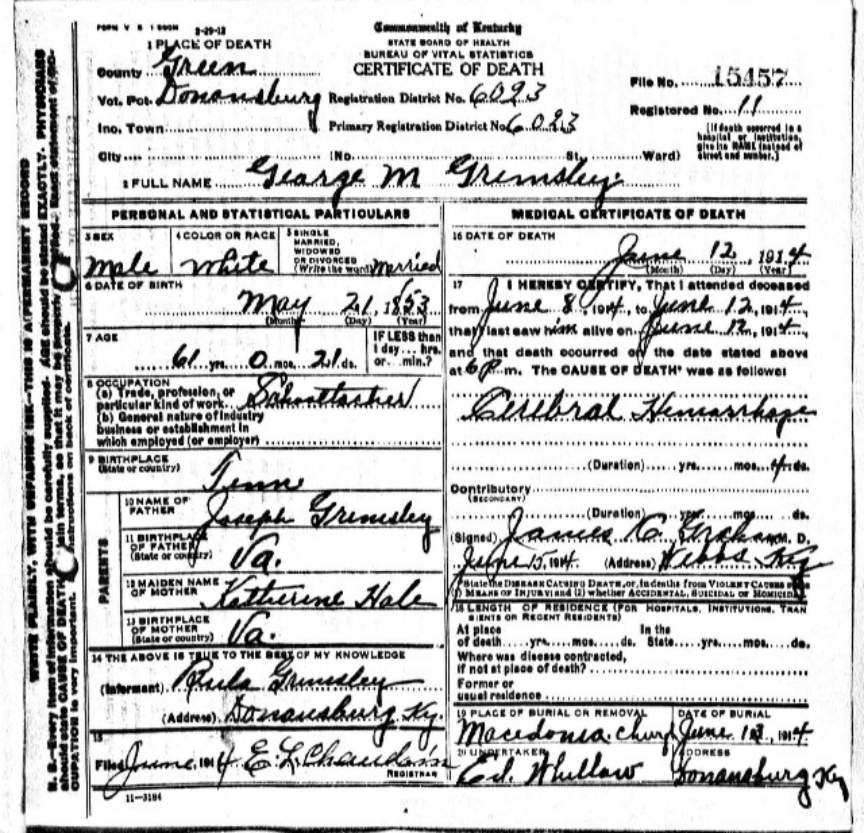 FORM V S 1 500M 2-29-12
Commonwealth of Kentucky
STATE BOARD OF HEALTH
BUREAU OF VITAL STATISTICS
CERTIFICATE OF DEATH
1 PLACE OF DEATH
County Green
Vot. Pct. Donansburg Registration District No. 6023
Inc. Town Primary Registration District No 6023
City (No. St. Ward)
File No. 15457
Registered No. 11
[If death occurred in a hospital or institution, give its NAME instead of street and number.]
2 FULL NAME George M Grimsley
PERSONAL AND STATISTICAL PARTICULARS
3 SEX Male
4 COLOR OR RACE White
5 SINGLE MARRIED, WIDOWED OR DIVORCED (Write the word) Married
6 DATE OF BIRTH
May 21, 1853
(Month) (Day) (Year)
7 AGE
61 yrs. 0 mos. 21 ds.
IF LESS than 1 day... hrs. or... min.?
8 OCCUPATION
(a) Trade, profession, or
particular kind of work Schoolteacher
(b) General nature of industry
business or establishment in
which employed (or employer)
9 BIRTHPLACE
(State or country)
Tenn
PARENTS
10 NAME OF FATHER Joseph Grimsley
11 BIRTHPLACE OF FATHER (State or country) Va.
12 MAIDEN NAME OF MOTHER Katherine Hale
13 BIRTHPLACE OF MOTHER (State or country) Va.
14 THE ABOVE IS TRUE TO THE BEST OF MY KNOWLEDGE
(Informant) Grimsley
(Address) Donansburg Ky.
15
Filed June, 1914 E. L.
REGISTRAR
11-3184
MEDICAL CERTIFICATE OF DEATH
16 DATE OF DEATH
June 12, 1914
(Month) (Day) (Year)
17 I HEREBY CERTIFY, That I attended deceased
from June 8, 1914, to June 12, 1914,
that I last saw him alive on June 12, 1914,
and that death occurred on the date stated above
at 6 P m. The CAUSE OF DEATH* was as follows:
Cerebral Hemorrhage
(Duration) yrs. mos. 4 ds.
Contributory
(SECONDARY)
(Duration) yrs. mos. ds.
(Signed) James C. Graham M. D.
June 15, 1914 (Address) Webbs Ky
*State the DISEASE CAUSING DEATH, or, in deaths from VIOLENT CAUSES
(1) MEANS OF INJURY; and (2) whether ACCIDENTAL, SUICIDAL OR HOMICIDAL
18 LENGTH OF RESIDENCE (FOR HOSPITALS, INSTITUTIONS, TRAN
SIENTS OR RECENT RESIDENTS)
At place In the
of death yrs. mos. ds. State yrs. mos. ds.
Where was disease contracted,
if not at place of death?
Former or
usual residence
19 PLACE OF BURIAL OR REMOVAL
Macedonia Church
DATE OF BURIAL
June 13, 1914
20 UNDERTAKER
Ed. Whitlow
ADDRESS
Donansburg Ky
WRITE PLAINLY, WITH UNFADING INK—THIS IS A PERMANENT RECORD
N. B.—Every item of information should be carefully supplied. AGE should be stated EXACTLY. PHYSICIANS
should state CAUSE OF DEATH in plain terms, so that it may be properly classified. Exact statement of OC-
CUPATION is very important. instructions on back of certificate.